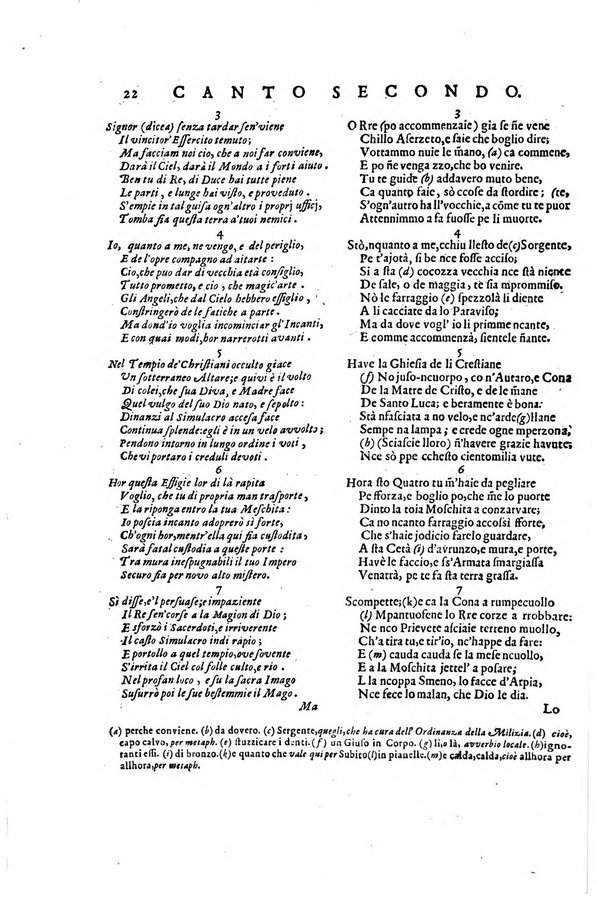 22 CANTO SECONDO.
3
Signor (dicea) ſenza tardar ſen'viene
Il vincitor'Eſſercito temuto;
Ma facciam noi ciò, che a noi far conviene,
Darà il Ciel, darà il Mondo a i forti aiuto.
Ben tu di Re, di Duce hai tutte piene
Le parti, e lunge hai viſto, e proveduto.
S'empie in tal guiſa ogn'altro i proprj ufficj,
Tomba fia queſta terra a'tuoi nemici.
4
Io, quanto a me, ne vengo, e del periglio,
E de l'opre compagno ad aitarte:
Cio, che puo dar di vecchia età conſiglio,
Tutto prometto, e ciò, che magic'arte.
Gli Angeli, che dal Cielo hebbero eſſiglio,
Conſtringerò de le fatiche a parte.
Ma dond'io voglia incominciar gl'Incanti,
E con quai modi, hor narrerotti avanti.
5
Nel Tempio de'Chriſtiani occulto giace
Un ſotterraneo Altare; e quivi è il volto
Di colei, che ſua Diva, e Madre face
Quel vulgo del ſuo Dio nato, e ſepolto:
Dinanzi al Simulacro acceſa face
Continua ſplende: egli è in un velo avvolto;
Pendono intorno in lungo ordine i voti,
Che vi portaro i creduli devoti.
6
Hor queſta Effigie lor di là rapita
Voglio, che tu di propria man traſporte,
E la riponga entro la tua Meſchita:
Io poſcia incanto adoprerò sì forte,
Ch'ogni hor, mentr'ella qui fia cuſtodita,
Sarà fatal cuſtodia a queſte porte:
Tra mura ineſpugnabili il tuo Impero
Securo fia per novo alto miſtero.
7
Sì diſſe, e'l perſuaſe; e impaziente
Il Re ſen'corſe a la Magion di Dio;
E sforzò i Sacerdoti, e irriverente
Il caſto Simulacro indi rapio;
E portollo a quel tempio, ove ſovente
S'irrita il Ciel col folle culto, e rio.
Nel profan loco, e ſu la ſacra Imago
Suſurrò poi le ſue beſtemmie il Mago.
Ma
3
O Rre (po accommenzaie) gia ſe ñe vene
Chillo Aſerzeto, e ſaie che boglio dire;
Vottammo nuie le m̃ano, (a) ca commene,
E può che ne venga zzo, che bò venire.
Tu te guide (b) addavero muto bene,
Ca quanto faie, sò ccoſe da ſtordire; (te,
S'ogn'autro ha ll'vocchie, a cõme te puor
Attennimmo a fa fuoſſe pe li muorte.
4
Stò, nquanto a mme, cchiu lleſto de (c) Sorgente,
Pe t'ajotà, ſi be nce foſſe acciſo;
Si a ſta (d) cocozza vecchia nce ſtà niente
De ſale, o de maggia, te ſia mprommiſo.
Nò le farraggio (e) ſpezzolà li diente
A li cacciate da lo Paraviſo;
Ma da dove vogl' io li primme ncante,
E comme accommenzà, ſientele ñante.
5
Have la Ghieſia de li Creſtiane
(f) No juſo-ncuorpo, co n'Autaro, e Cona
De la Matre de Criſto, e de le mmane
De Santo Luca; e beramente è bona.
Stà nfaſciata a no velo, e nc'arde (g) llane
Sempe na lampa; e crede ogne mperzona,
(h) (Sciaſcie lloro) ñ'havere grazie havute;
Nce sò ppe cchieſto cientomilia vute.
6
Hora ſto Quatro tu m̃'haie da pegliare
Pe fforza, e boglio po, che me lo puorte
Dinto la toia Moſchita a conzarvare;
Ca no ncanto farraggio accoſsì fforte,
Che s'haie jodicio farelo guardare,
A ſta Cetà (i) d'avrunzo, e mura, e porte,
Havè le faccio, e ſs'Armata ſmargiaſſa
Venarrà, pe te fa ſta terra graſſa.
7
Scompette; (k) e ca la Cona a rumpecuollo
(l) Mpantuofene lo Rre corze a rrobbare:
Ne nco Prievete acſaie terreno muollo,
Ch'a tira tu, e tir'io, nc'happe da fare:
E (m) cauda cauda ſe la meſe ncuollo,
E a la Moſchita jettel' a poſare;
L la ncoppa Smeno, lo facce d'Arpia,
Nce fece lo malan, che Dio le dia.
Lo
(a) perche conviene. (b) da dovero. (c) Sergente, quegli, che ha cura dell' Ordinanza della Milizia. (d) cioè,
capo calvo, per metaph. (e) ſtuzzicare i denti. (f) un Giuſo in Corpo. (g) lì, o là, avverbio locale. (h) igno-
ranti eſſi. (i) di bronzo. (k) e quanto che vale qui per Subito (l) in pianelle. (m) calda, calda, cioè allhora per
allhora, per metaph.